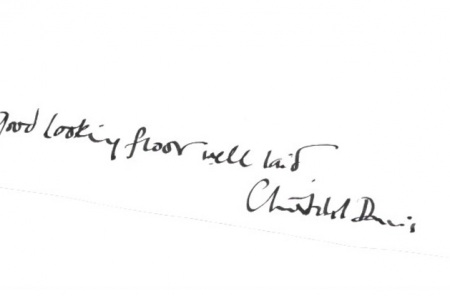 good looking floor well laid
Davis